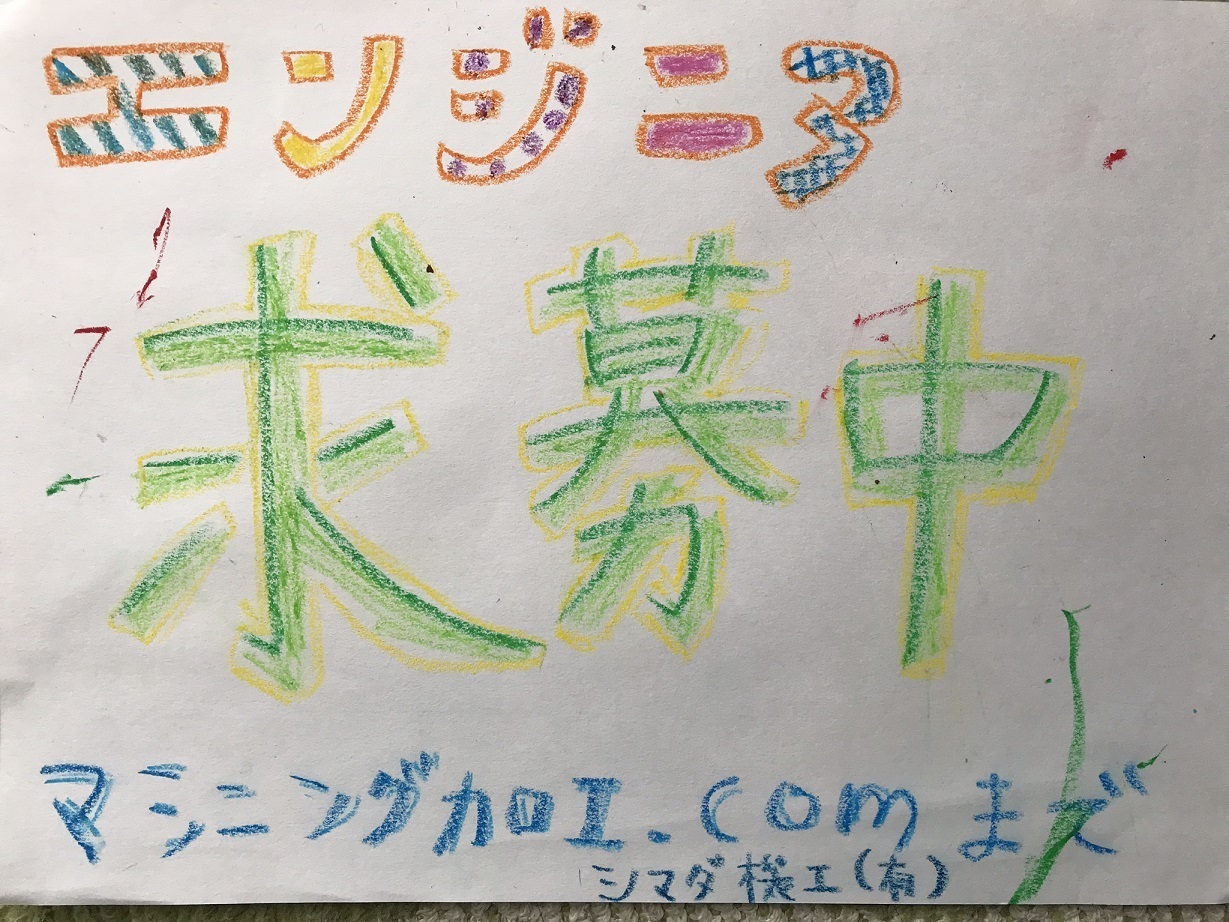 エンジニア
求募中
マシニング加工.comまで
シマダ機工(有)